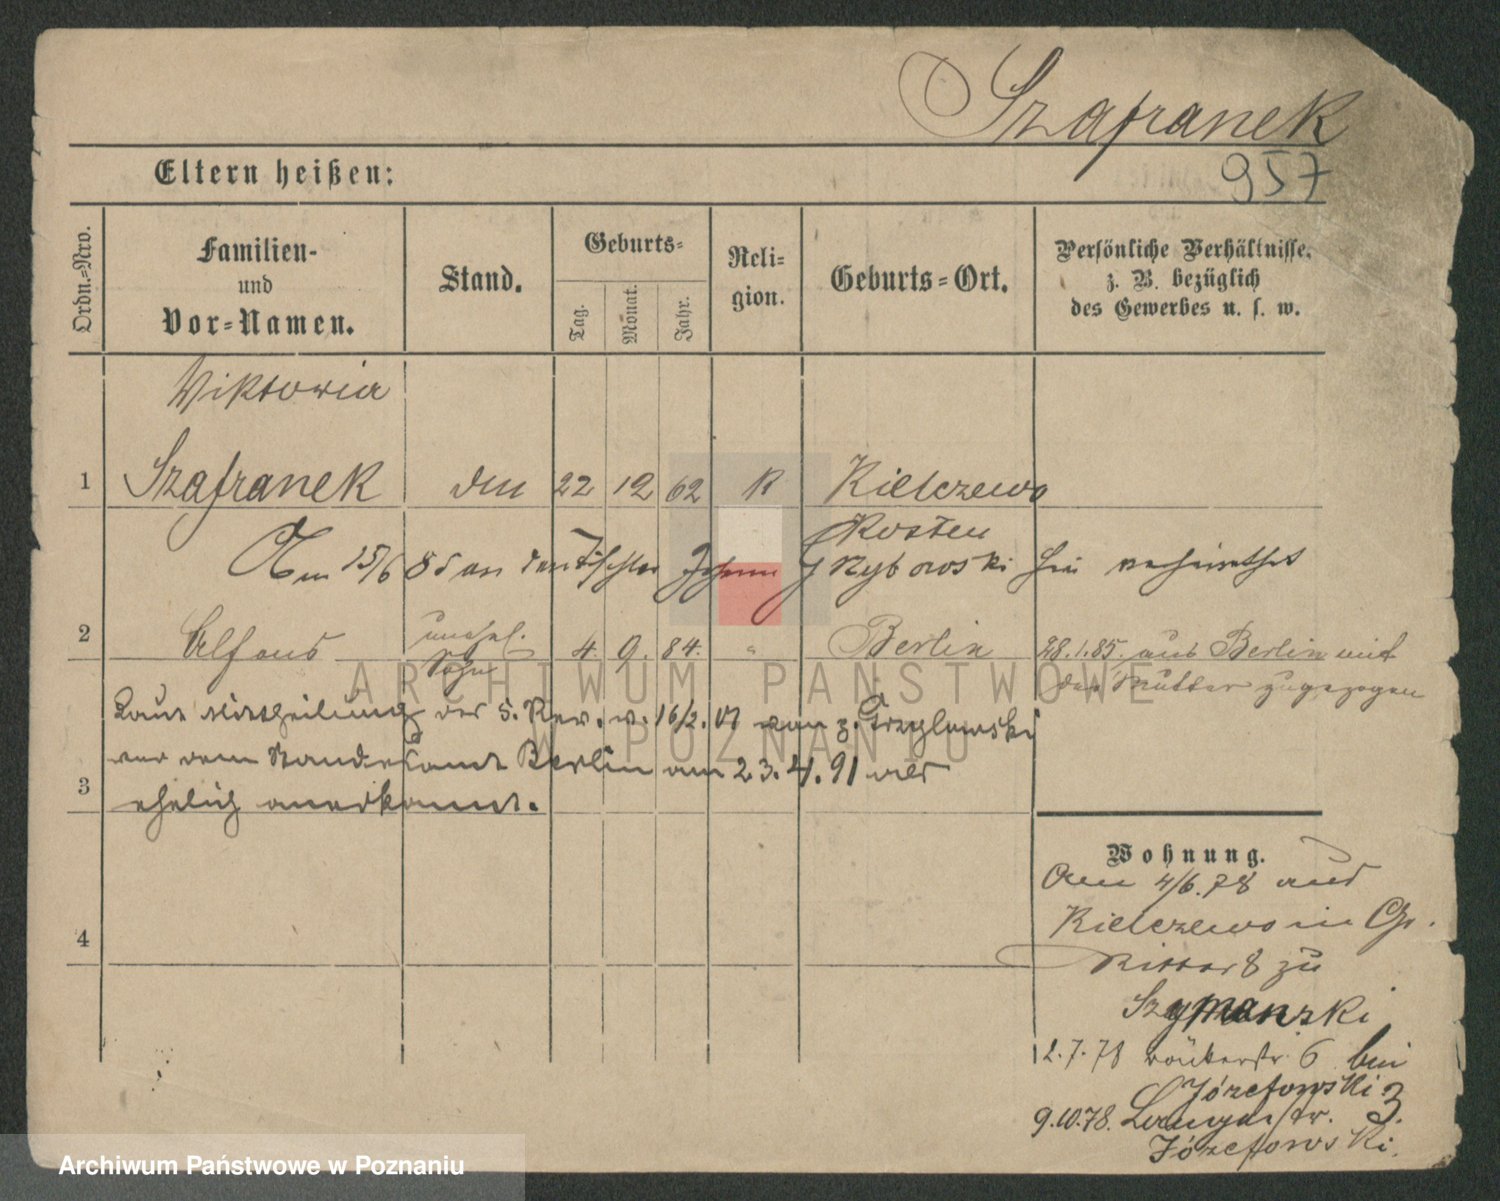 Szafranek
957
Eltern heißen:
Ordn.-Nro.
Familien-
und
Vor-Namen.
Stand.
Geburts-
Tag.
Monat.
Jahr.
Reli-
gion.
Geburts-Ort.
Persönliche Verhältnisse.
z. B. bezüglich
des Gewerbes u. s. w.
Viktoria
1 Szafranek 22 12 62 K Kielczewo
Kosten
Am 15/6 85 an den Tischler Johann Grzybowski hier verheirathet
2 Alfons unehel. Sohn 4. 9. 84. " Berlin 28.1.85. aus Berlin mit
der Mutter zugezogen
Laut Mittheilung des 5. Rev. v. 16/2. 07 von
vor dem Standesamt Berlin am 23.4.91 als
3 ehelich anerkannt.
4
Wohnung.
Am 4/6.78 aus
Kielczewo in Gr.
Ritterst 8 zu
Szymanski
2.7.78 6 bei
Józefowski
9.10.78. Langestr. 3.
Józefowski.
ARCHIWUM PAŃSTWOWE
W POZNANIU
Archiwum Państwowe w Poznaniu